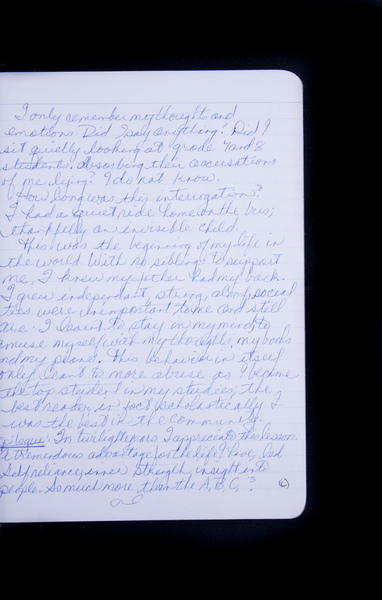 I only remember my thoughts and
emotions. Did I say anything? Did I
sit quietly looking at grade 7 and 8
students, absorbing their accusations
of me lying? I do not know.
How long was this interrogation?
I had a quiet ride home on the bus;
thankfully an invisible child.
This was the beginning of my life in
the world with no siblings to support
me, I knew my father had my back.
I grew independant, strong, along, social
ties were unimportant to me and still
are. I learnt to stay in my mind, to
amuse myself with my thoughts, my books
nd my piano. This behavior in itself
only to more abuse as I became
the top student in my studies, the
best reader, in fact scholastically I
was the best in the community.
plogue: In twilight years I appreciate the lesson.
A tremendous advantage for the life I have,
Self reliance, inner strength, insight into
people. So much more than the A, B, C,s
6